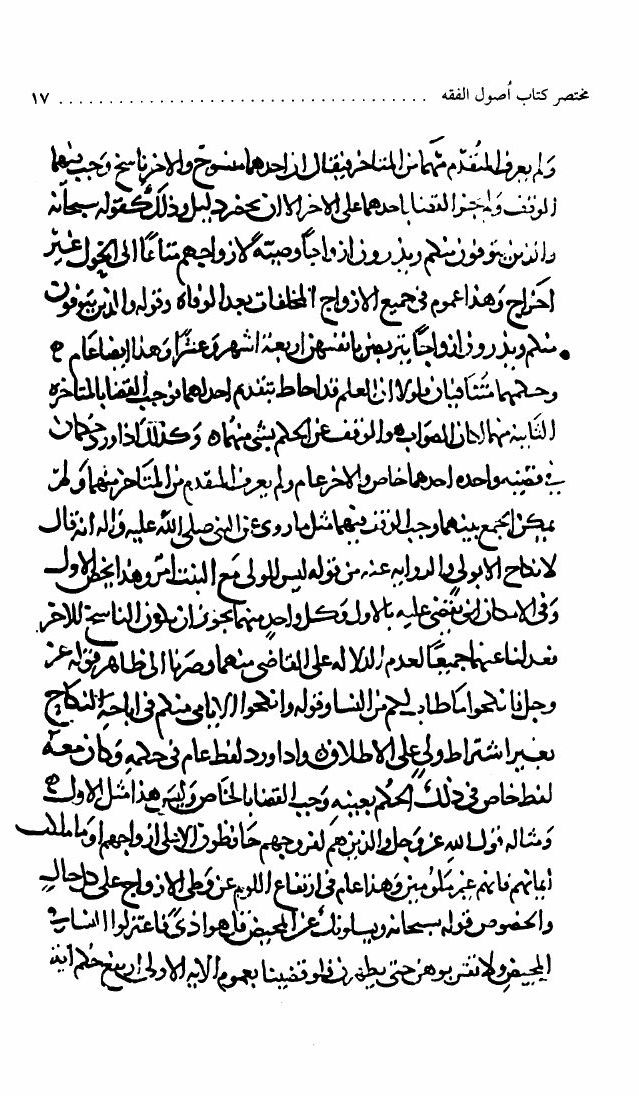 مختصر كتاب أصول الفقه ........................................ ١٧
ولم يعرف المتقدم منهما من المتاخر فيقال ان احدهما منسوخ والاخر ناسخ وجب فيهما
الوقف ولم يجز القضا باحدهما على الاخر الا ان يحضر دليل وذلك كقوله سبحانه
والذين يتوفون منكم ويذرون ازواجاً وصية لازواجهم متاعًا الى الحول غير
اخراج وهذا عموم في جميع الازواج المخلفات بعد الوفاة وقوله والذين يتوفون
منكم ويذرون ازواجًا يتربصن بانفسهن اربعة اشهر وعشرًا وهذا ايضا عام
وحكمهما متنافيان فلولا ان العلم قد احاط بتقديم احداهما فوجب القضا بالمتاخرة
الثانية منهما لكان الصواب هو الوقف عن الحكم بشي منهما وكذلك اذا ورد حكمان
في قضية واحدة احدهما خاص والاخر عام ولم يعرف المتقدم من المتاخر منهما ولم
يمكن الجمع بينهما وجب الوقف فيهما مثل ما روي عن النبي صلى الله عليه واله انه قال
لا نكاح الا بولي والرواية عنه من قوله ليس للولي مع البنت امر وهذا يخص الاول
وفي الامكان ان يقضى عليه بالاول وكل واحد منهما يجوز ان يكون الناسخ للاخر
فعدلنا عنهما جميعًا لعدم الدلالة على القاضي منهما وصرنا الى ظاهر قوله عز
وجل فانكحوا ما طاب لكم من النسا وقوله وانكحوا الايامى منكم في اباحة النكاح
بغير اشتراط ولي على الاطلاق واذا ورد لفظ عام في حكم وكان معه
لفظ خاص في ذلك الحكم بعينه وجب القضا بالخاص وليس هذا مثل الاول
ومثاله قول الله عز وجل والذين هم لفروجهم حافظون الا على ازواجهم او ما ملكت
ايمانهم فانهم غير ملومين وهذا عام في ارتفاع اللوم عن وطي الازواج على كل حال
والخصوص قوله سبحانه ويسلونك عن المحيض قل هو اذى فاعتزلوا النسا في
المحيض ولا تقربوهن حتى يطهرن فلو قضينا بعموم الاية الاولى ارتفع حكم اية